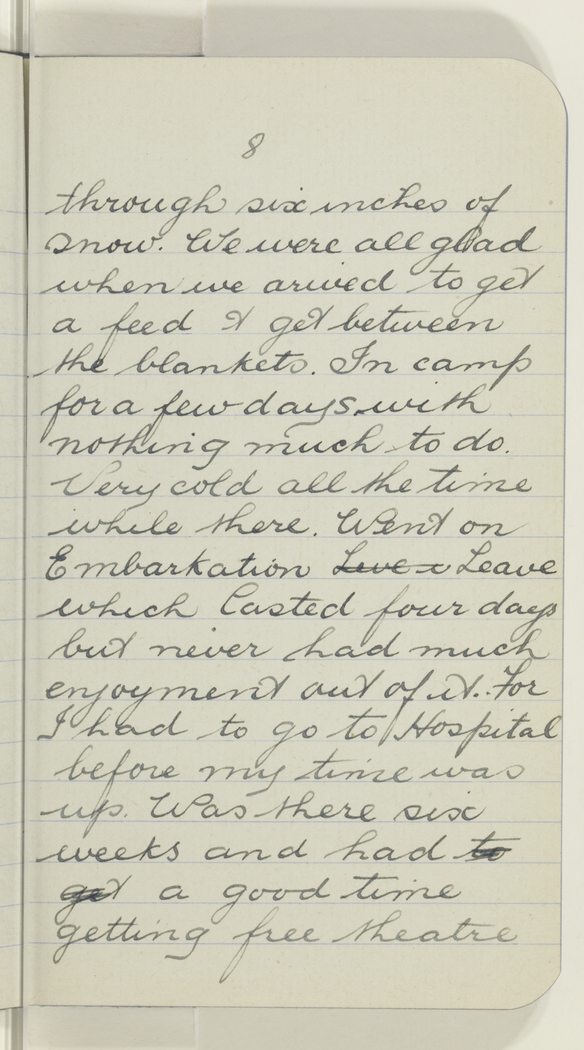 8
through six inches of
snow. We were all glad
when we arived to get
a feed & get between
the blankets. In camp
for a few days, with
nothing much to do.
Very cold all the time
while there. Went on
Embarkation Leve x Leave
which lasted four days
but never had much
enjoyment out of it. For
I had to go to Hospital
before my time was
up. Was there six
weeks and had to
get a good time
getting free theatre